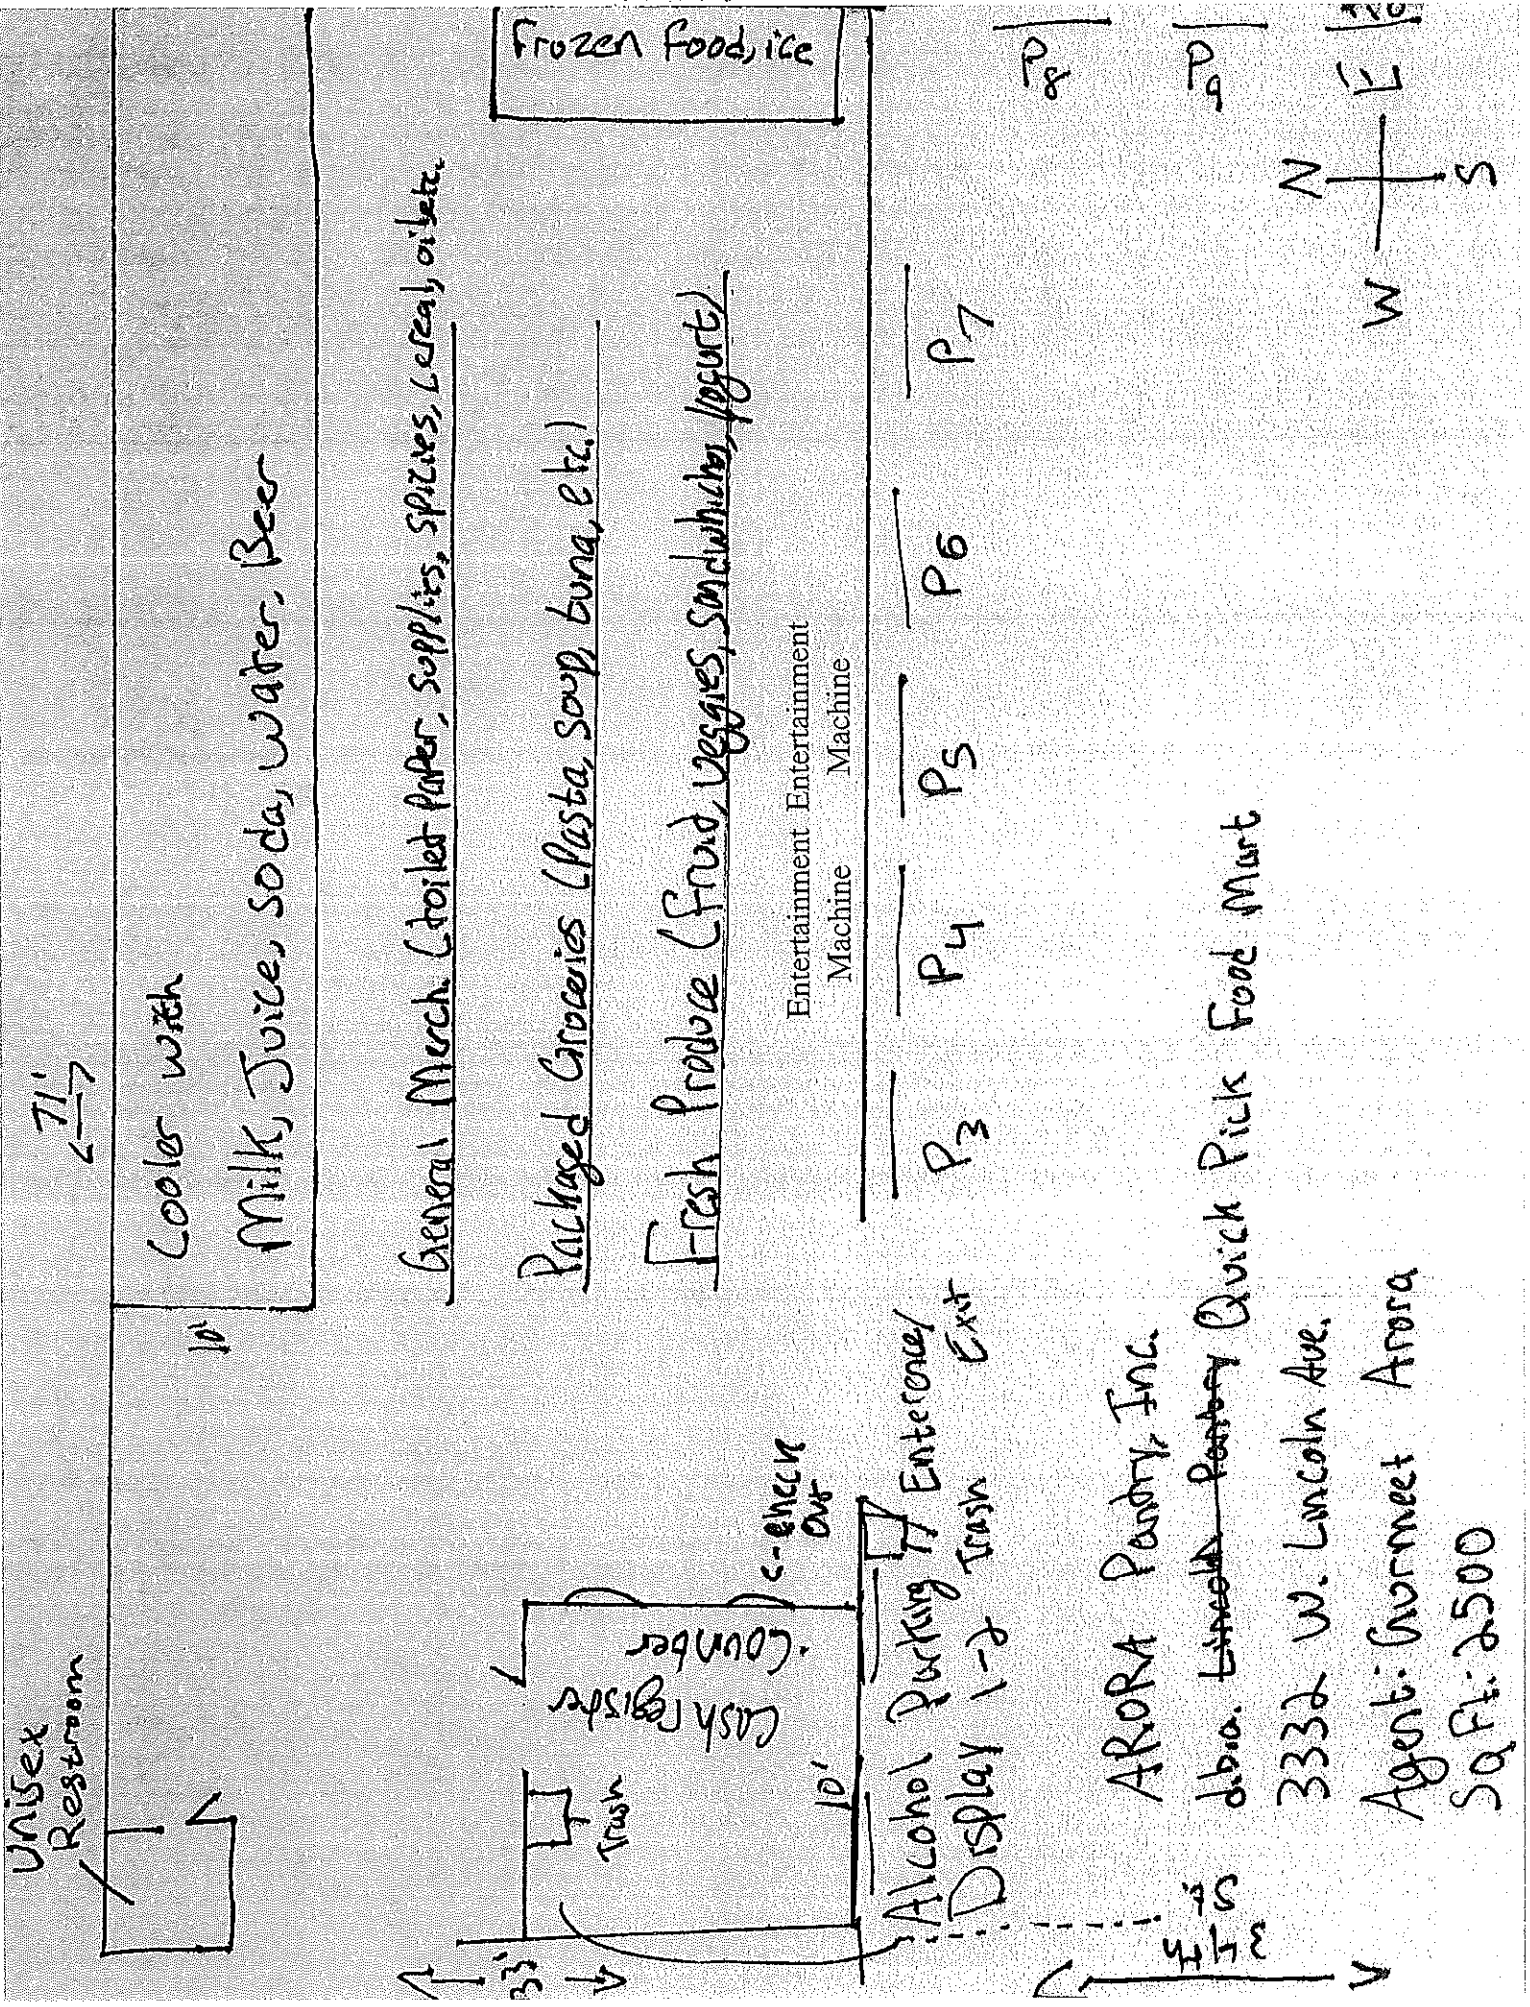 Unisex
Restroom
71'
10'
Cooler with
Milk, Juice, soda, water, Beer
General Merch (toilet Paper, supplies, spicies, cereal, oil etc.
Packaged Groceries (Pasta, soup, tuna, etc.)
Fresh Produce (fruit, veggies, sandwichs, yogurt)
Frozen food, ice
Entertainment Entertainment
Machine Machine
33'
Trash
Cash register
Counter
10'
c-check
out
Alcohol
Display
Parking
1-2
Trash
Enterence/
Exit
P3
P4
P5
P6
P7
P8
P9
ARORA Pantry, Inc.
dba. Lincoln Pantry Quick Pick Food Mart
3332 W. Lincoln Ave.
Agent: Gurmeet Arora
Sq Ft: 2500
N
W
E
S